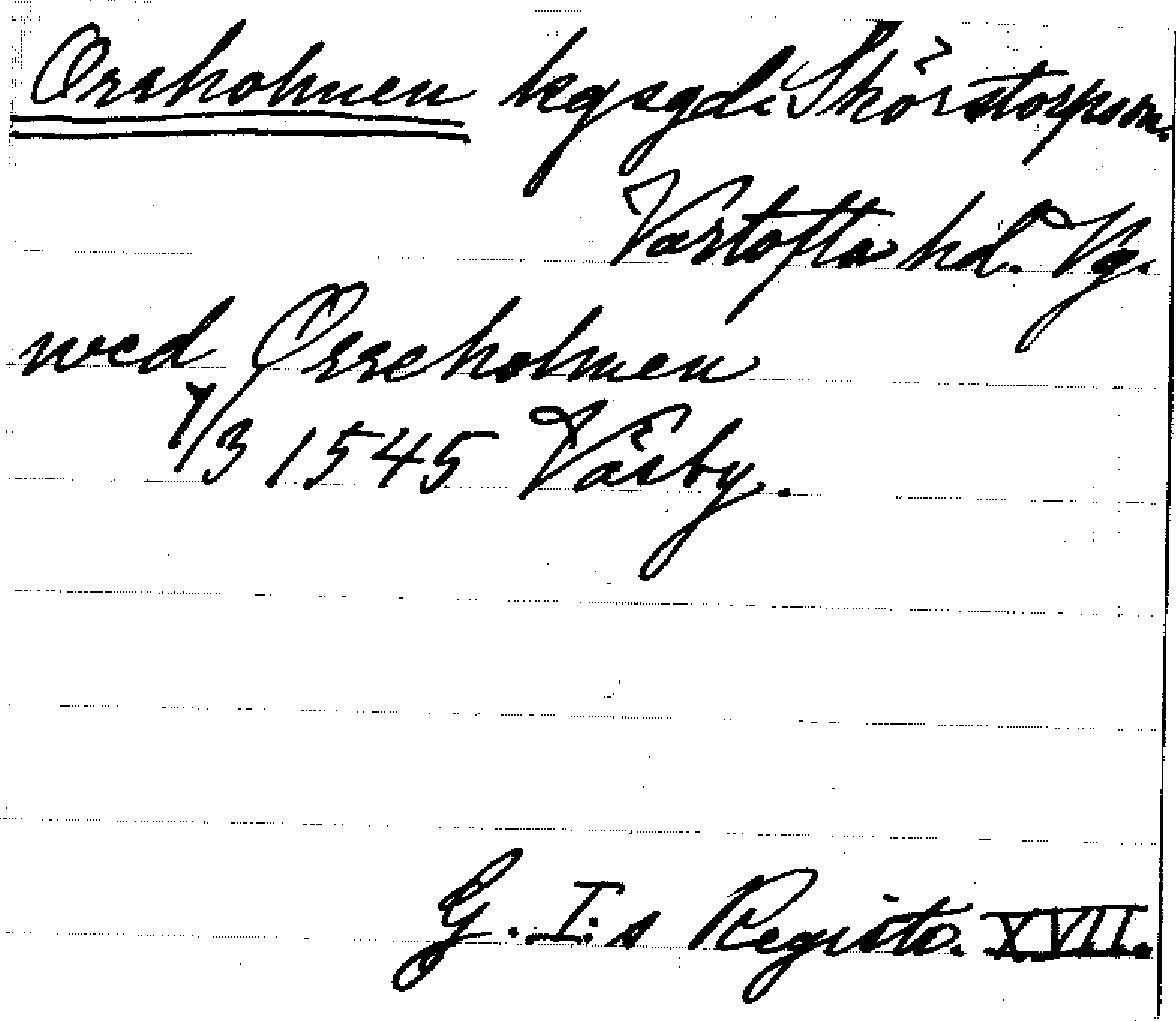 Orrholmen kgsgd i Skörstorps sn.
Vartofta hd. Vg.
wed Orreholmen
7/3 1545 Väsby.
G. I:s Registr. XVII.